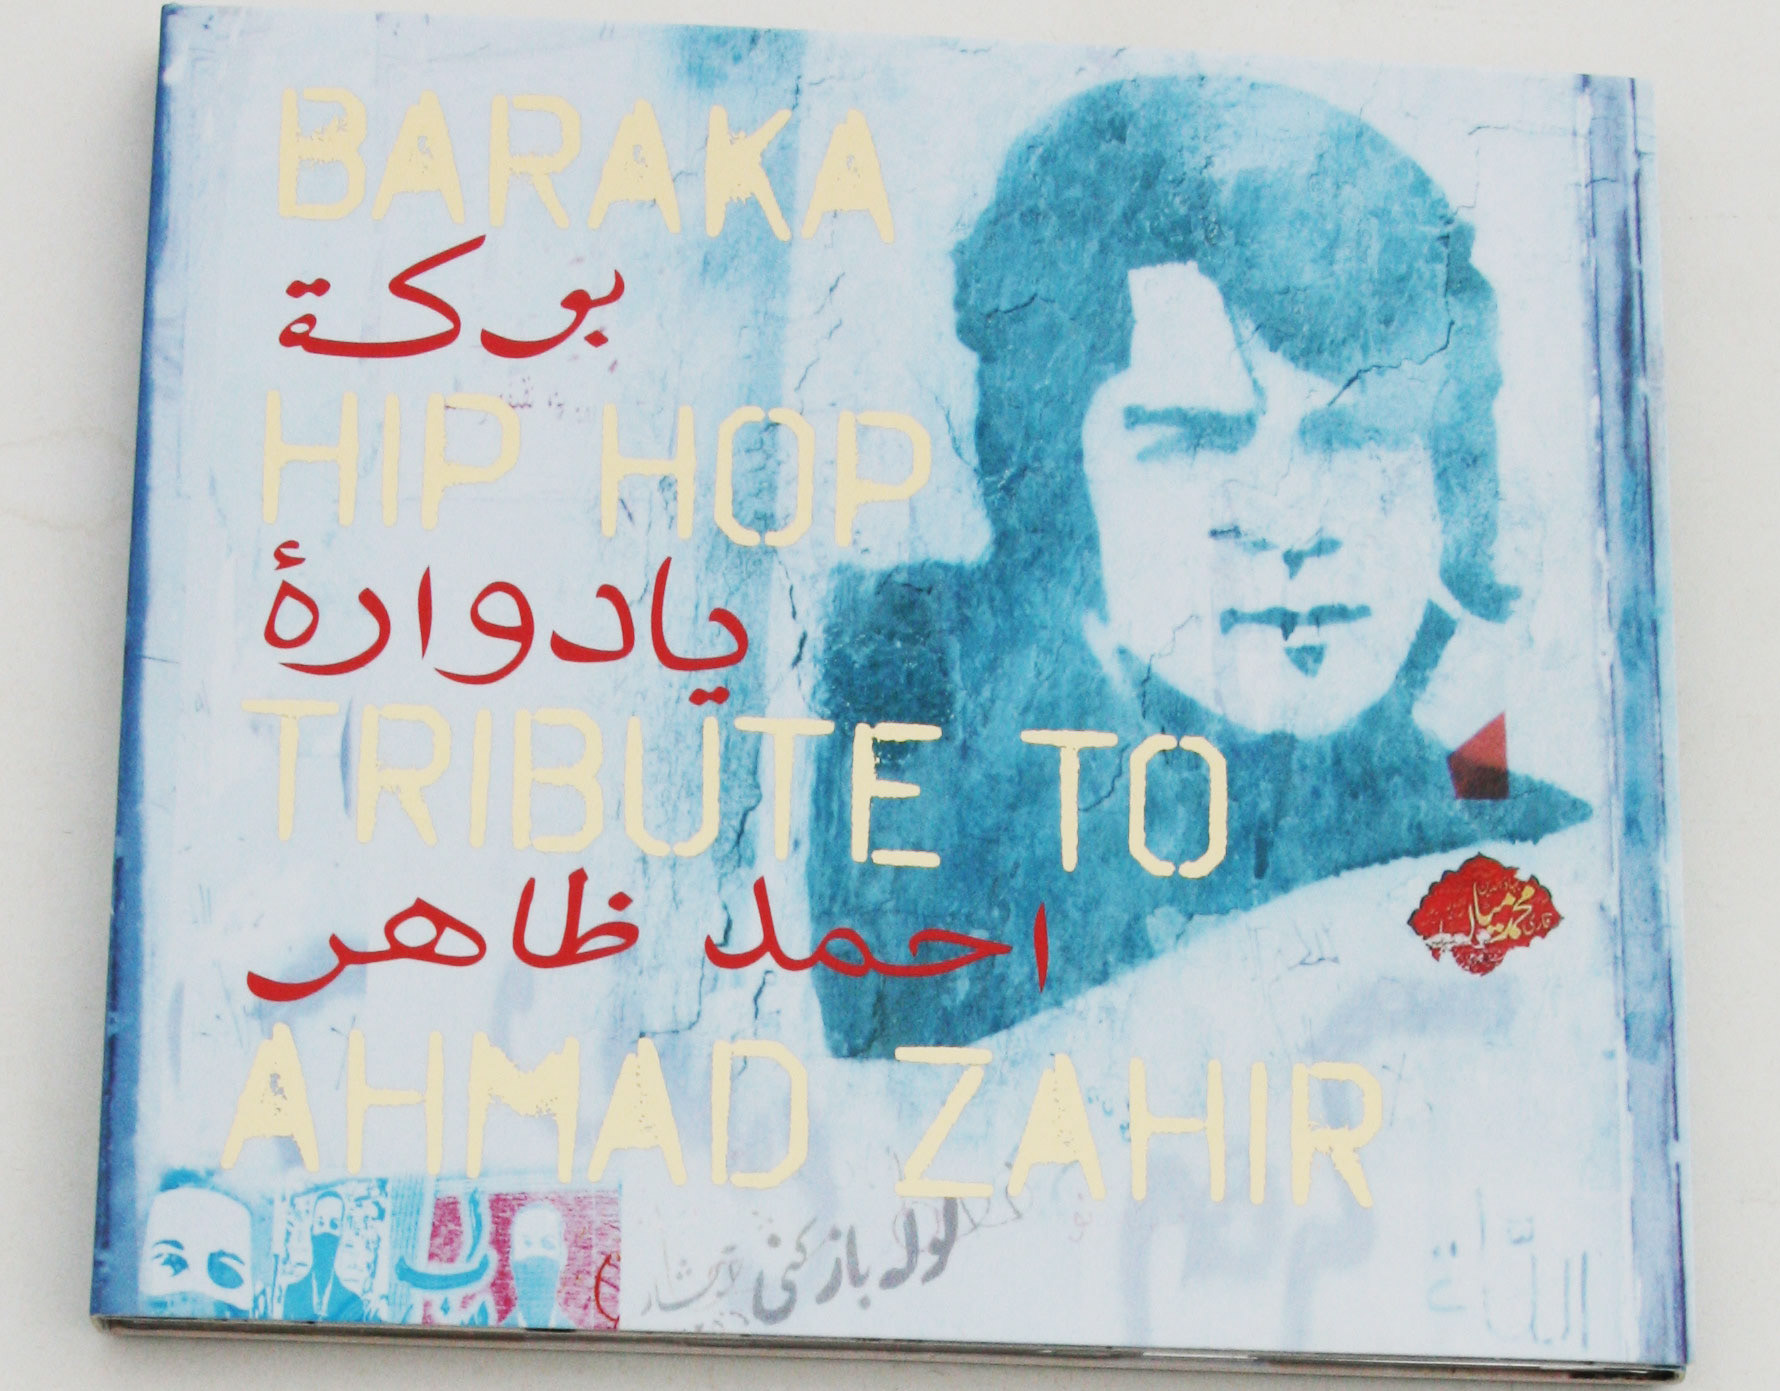 BARAKA
بوكة
HIP HOP
يادوارۀ
TRIBUTE TO
احمد ظاهر
AHMAD ZAHIR
لوله باز کنی